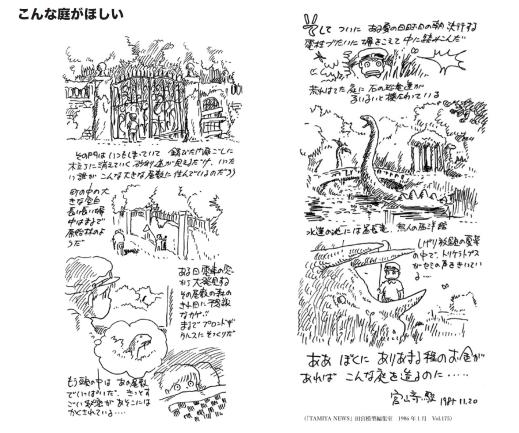 こんな庭がほしい
その門はいつもしまっていて 錆びた門扉ごしに
木立ちに消えていく砂利道が見えるだけ、いった
い誰がこんな大きな屋敷に住んでいるのだろう
町の中の大
きな空白
長い長い塀
中はまるで
原始林のよ
うだ
ある日 電車の窓
から 大発見する
その屋敷の森の
まるでブロントザ
ウルスにそっくりだ
もう頭の中は あの屋敷
でいっぱいだ. きっとす
ごい秘密があそこには
かくされている‥‥
そして ついに ある夏の日 決行する
電柱づたいに塀をこえて中に踏みこんだ
荒れはてた庭に石の恐竜達が
まるいると横たわっている
水蓮の池には首長竜 無人の西洋館
しげり放題の夏草
の中で、トリケラトプス
がセミの声をきいてい
る‥‥
ああ ぼくに ありあまる程のお金が
あれば こんな庭を造るのに‥‥‥
宮崎駿 1985 11.20
(「TAMIYA NEWS」田宮模型編集室 1986年1月 Vol.175)